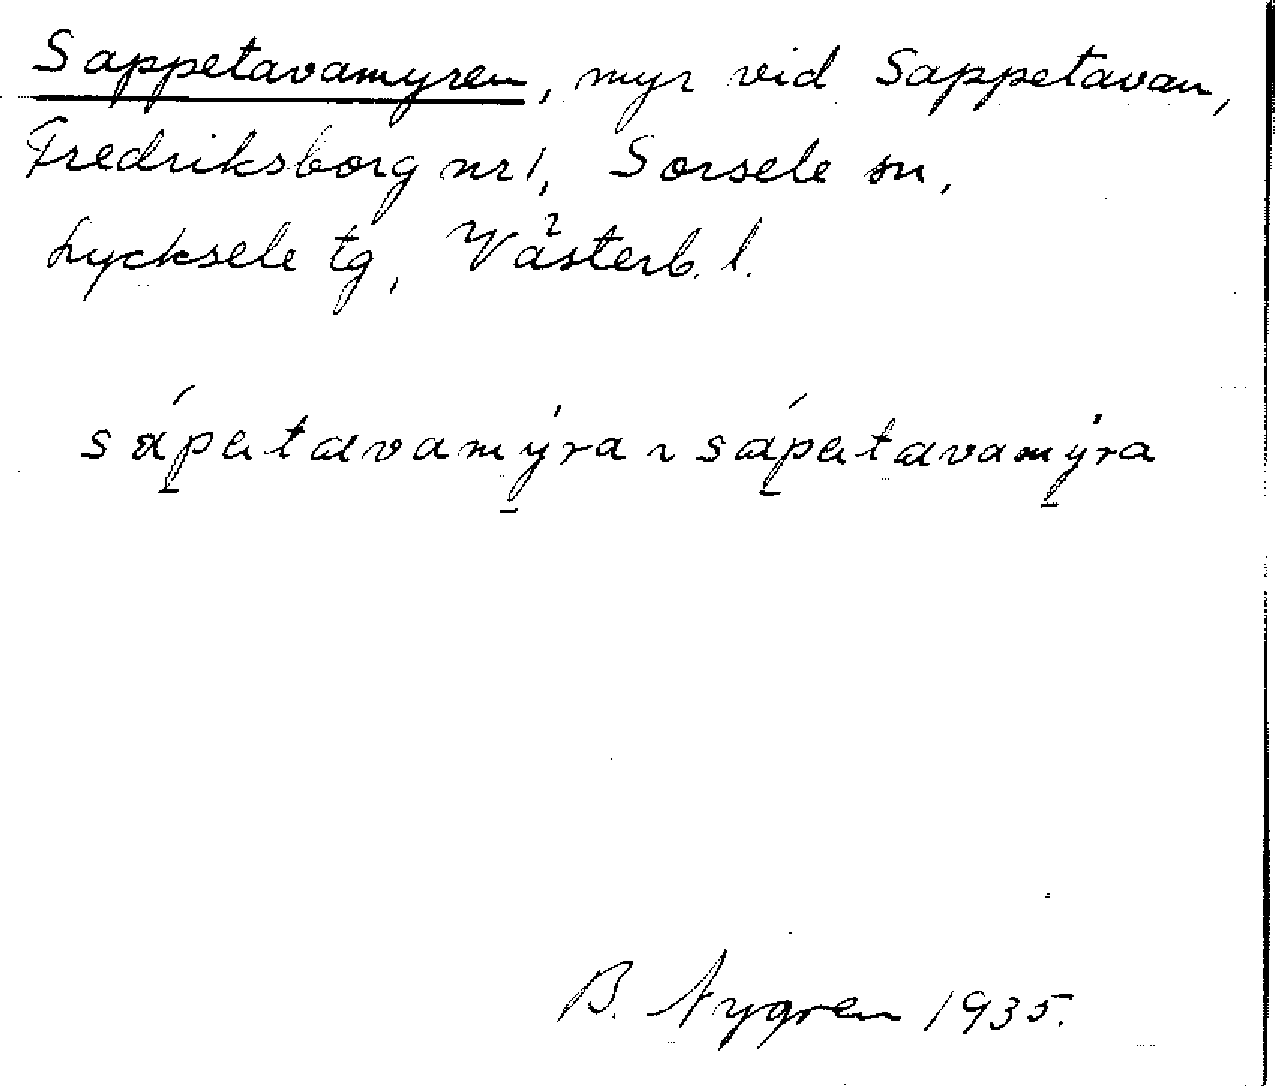 Sappetavamyren, myr vid Sappetavan,
Fredriksborg nr 1, Sorsele sn,
Lycksele tg, Västerb. l.
sápatavamýra ~ sápatavamýra
B. Nygren 1935.